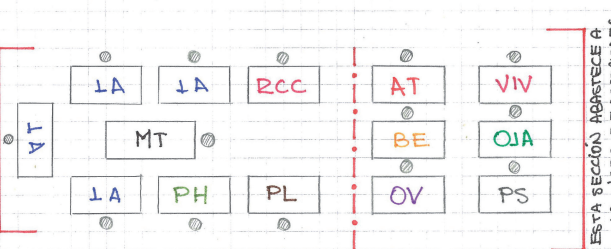 1A 1A RCC AT VIV
1A
MT BE OJA
1A PH PL OV PS
ESTA SECCIÓN ABASTECE A